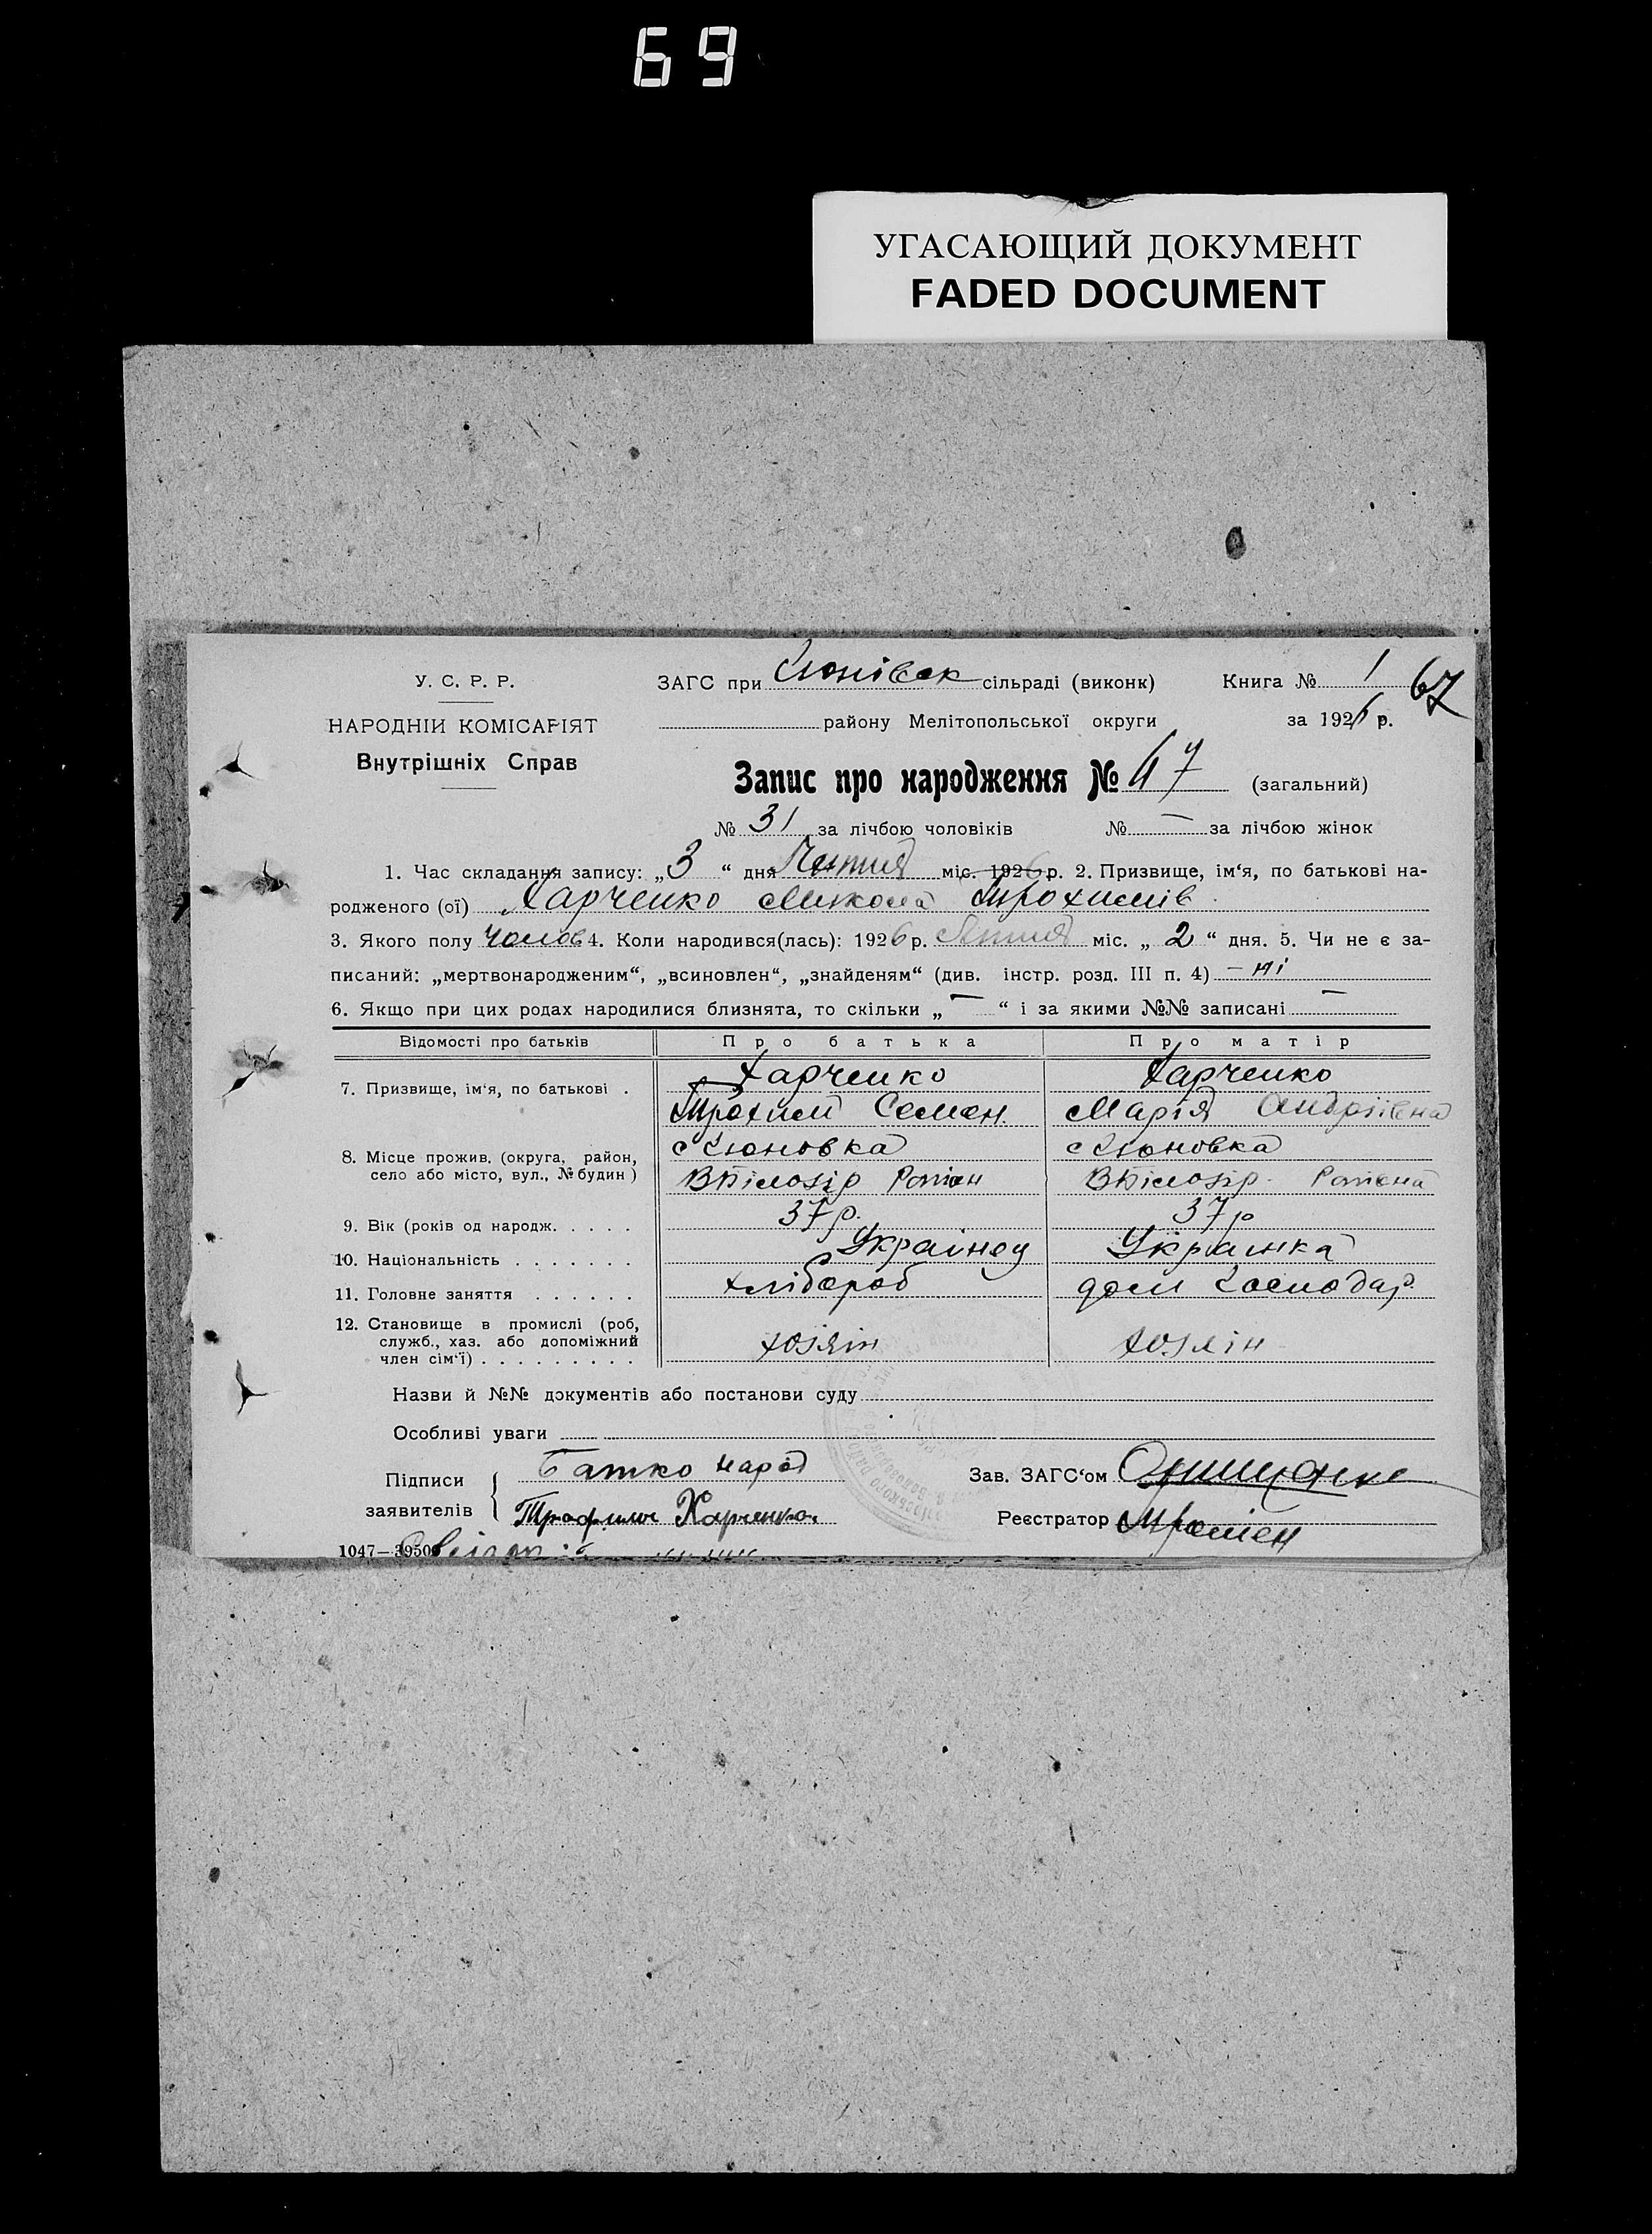 69
УГАСАЮЩИЙ ДОКУМЕНТ
FADED DOCUMENT
У. С. Р. Р.
НАРОДНІЙ КОМІСАРІЯТ
Внутрішніх Справ
ЗАГС при сільраді (виконк)
Книга № 1 67
району Мелітопольської округи
за 1926 р.
Запис про народження № 47 (загальний)
№ 31 за лічбою чоловіків № — за лічбою жінок
1. Час складання запису: „3“ дня міс. 1926 р. 2. Призвище, ім‘я, по батькові на-
родженого (ої) Харченко Микола Трохимів
3. Якого полу Чолов 4. Коли народився(лась): 1926 р. міс. „2“ дня. 5. Чи не є за-
писаний: „мертвонародженим“, „всиновлен“, „знайденям“ (див. інстр. розд. III п. 4) — ні
6. Якщо при цих родах народилися близнята, то скільки „—“ і за якими №№ записані —
Відомості про батьків Про батька Про матір
7. Призвище, ім‘я, по батькові . Харченко Харченко
Трохим Семен. Марія Андріївна
8. Місце прожив. (округа, район,
село або місто, вул., № будин)
ВБілозір ВБілозір.
9. Вік (років од народж. . . . . 37 р. 37 р
10. Національність . . . . . . . Українец Українка
11. Головне заняття . . . . . . Хлібороб дом Господар.
12. Становище в промислі (роб,
служб., хаз. або допоміжний
член сім‘ї) . . . . . . . . . хозяін хозяін
Назви й №№ документів або постанови суду
Особливі уваги
Підписи
заявителів
Батко народ
Трофим Харченко.
Зав. ЗАГС‘ом
Реєстратор
1047—3950